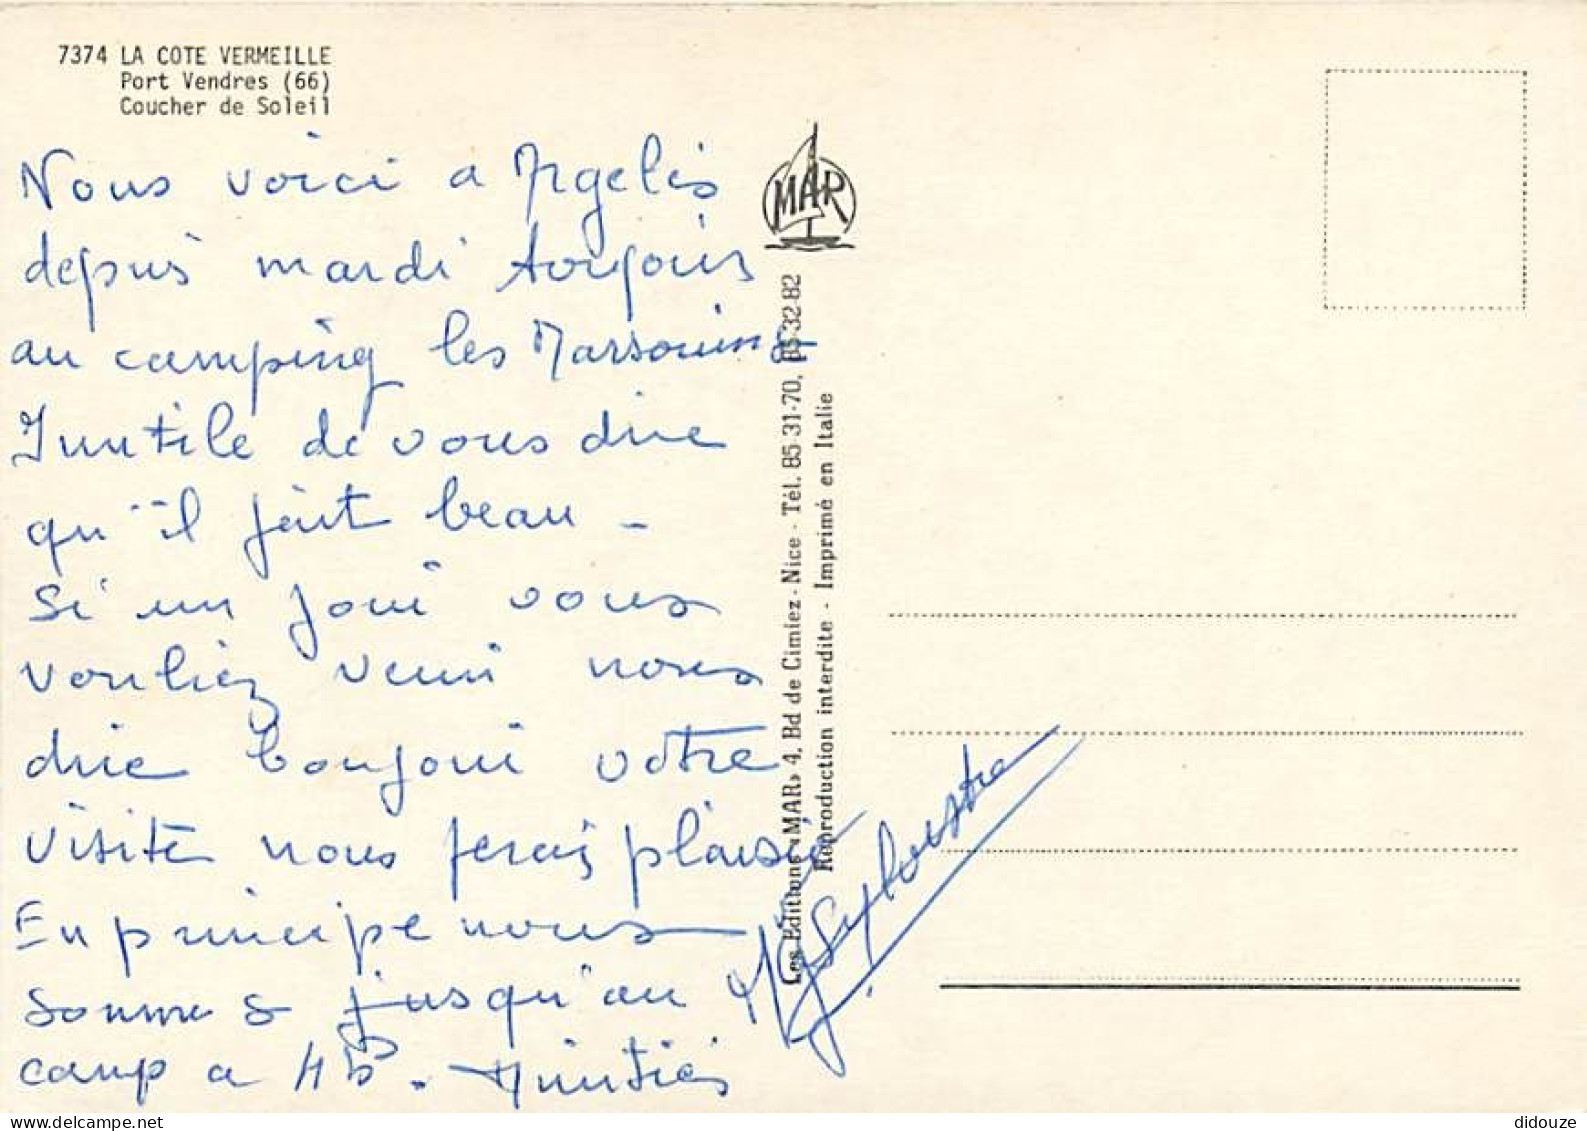 7374 LA COTE VERMEILLE
Port Vendres (66)
Coucher de Soleil
Nous voici a Argelès
depuis mardi toujours
au camping les Marsouins
Inutile de vous dire
qu'il fait beau -
Si un jour vous
vouliez venir nous
dire bonjour votre
visite nous ferais plaisir
En principe nous
sommes jusqu'au
camp a 4h. Amitiés
Sylvestre
MAR
Les Editions «MAR» 4, Bd de Cimiez - Nice - Tél. 85 31-70, 85-32-82
Reproduction interdite - Imprimé en Italie
didouze